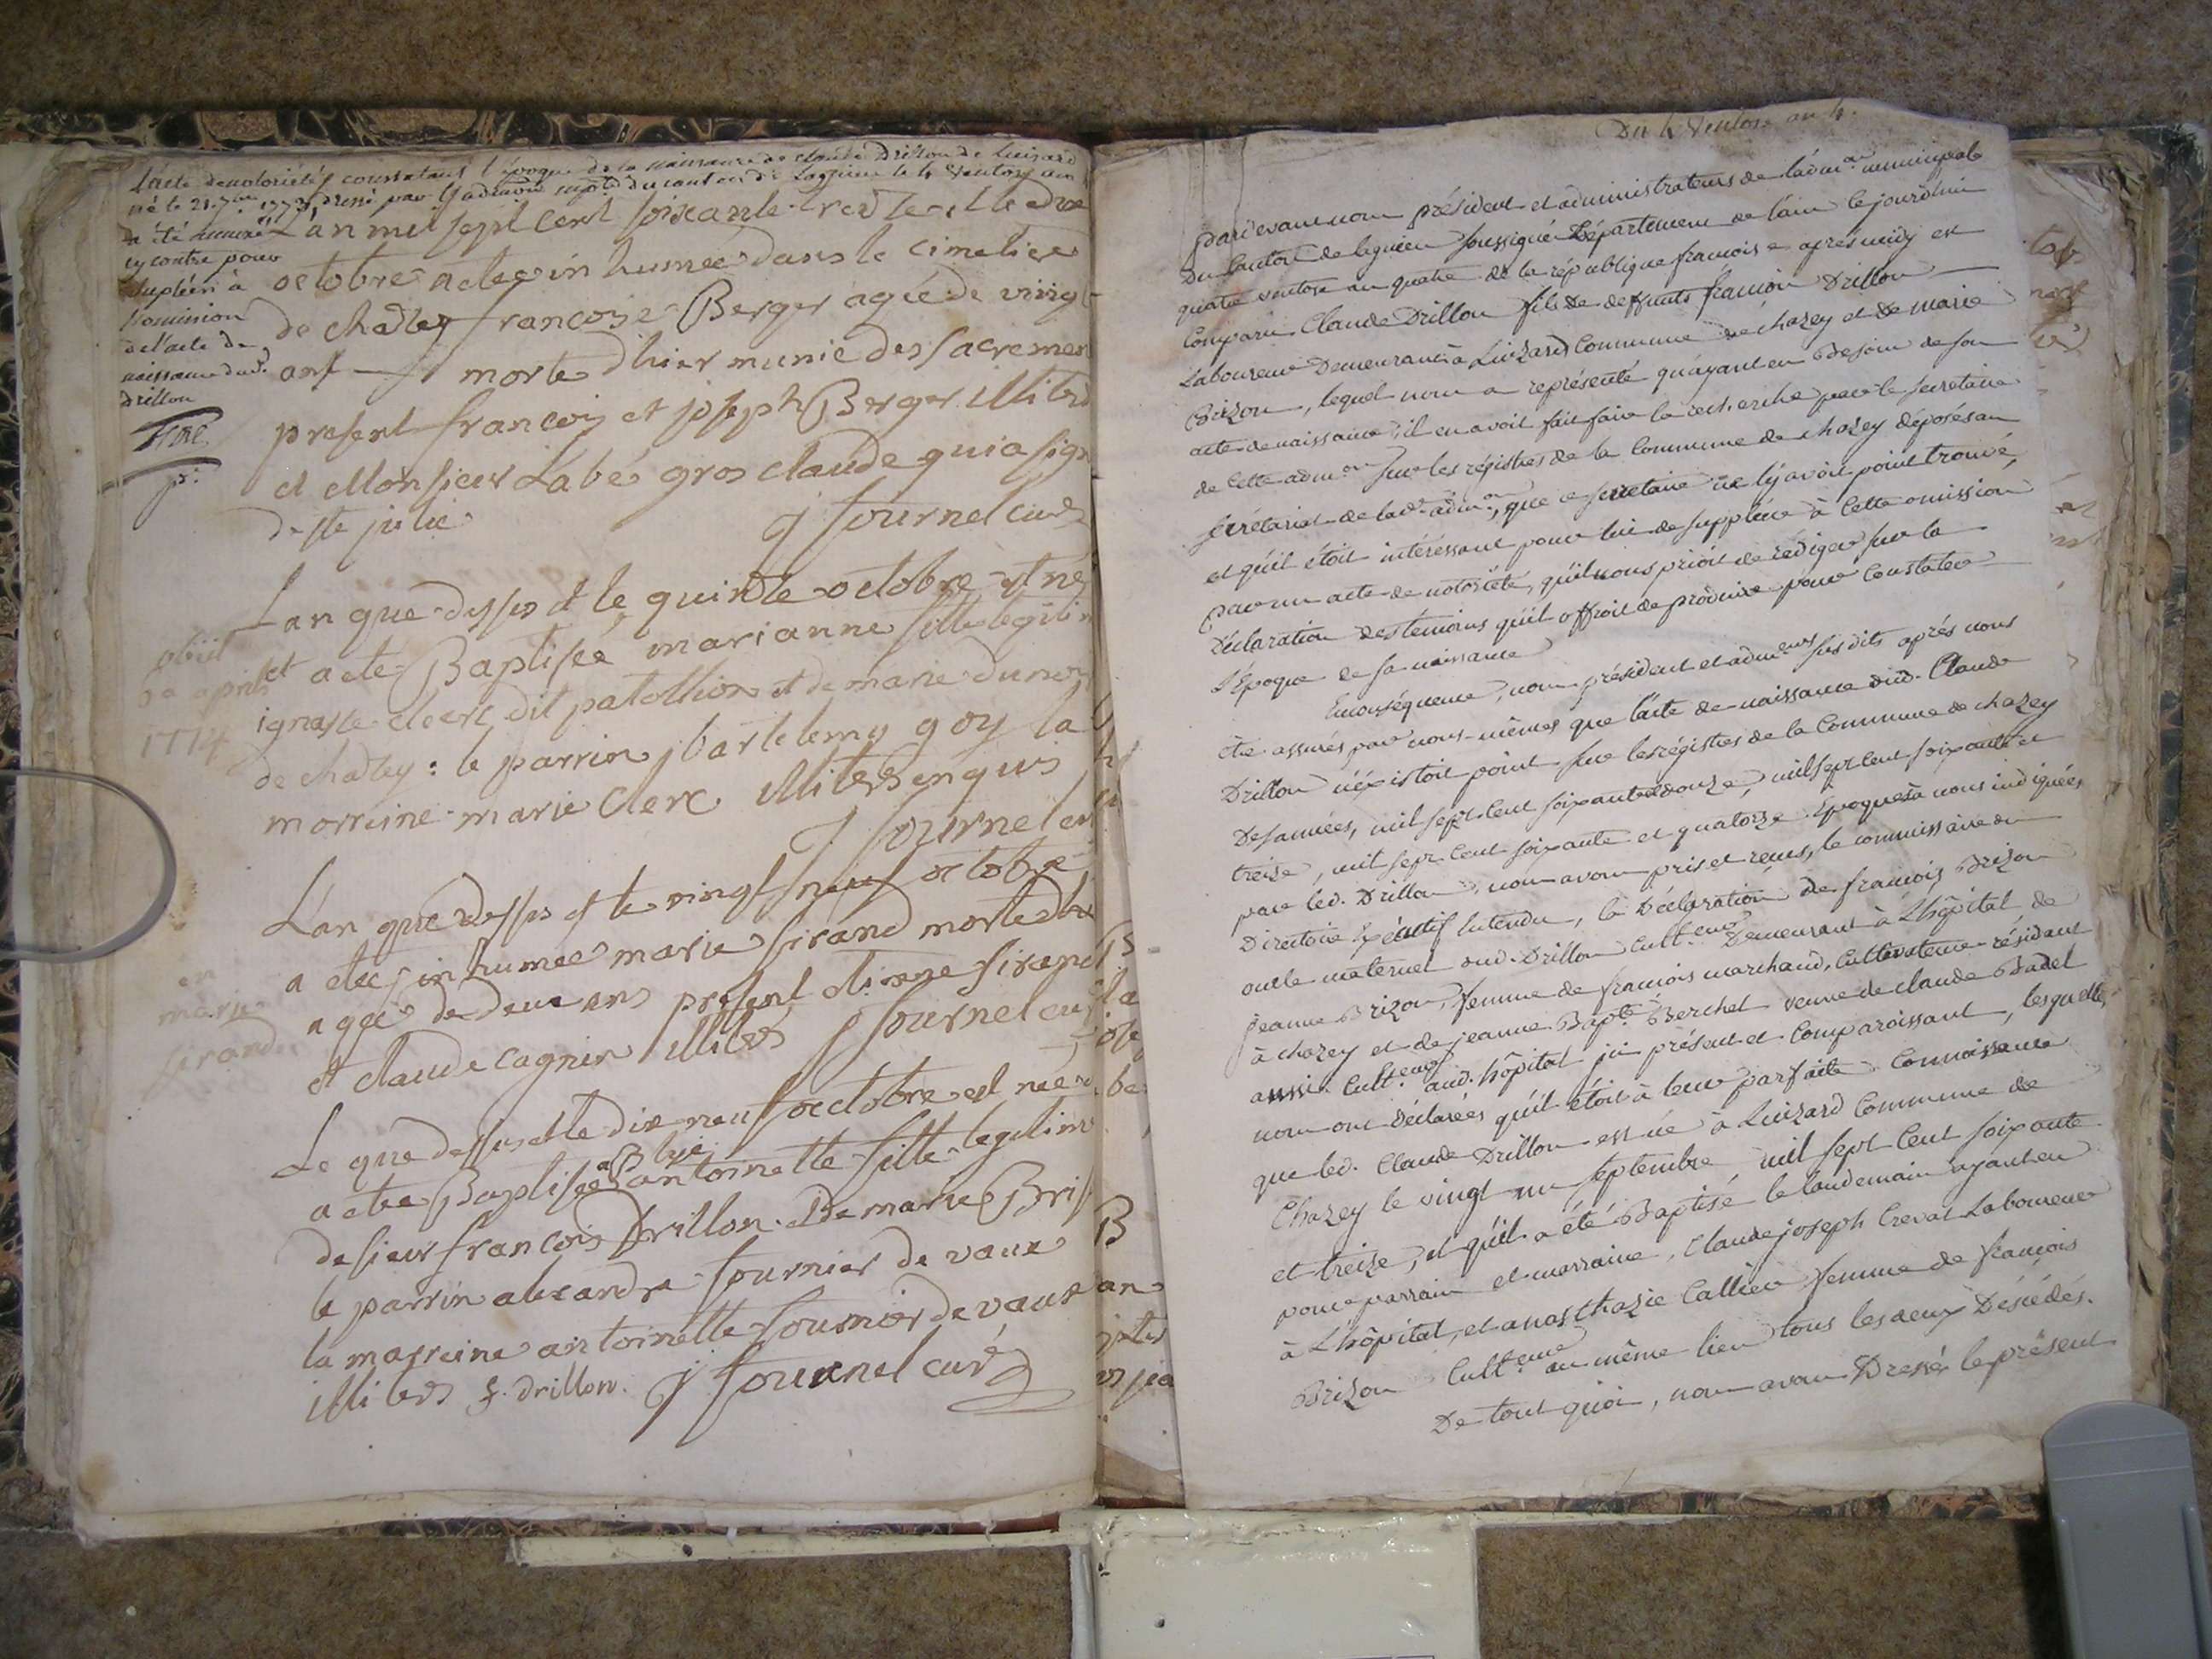 L'acte de notoriétés constatant l'époque de la naissance de claude Drillon de Luizard
né le 21. 7bre 1773, dressé par l'admon mple du canton de Lagnieu le 4 Ventose an
a été
cy contre pour
supléér à
l'omission
de l'acte de
naissance dud.
drillon
L'an mil sept cent soixante treize et le
octobre a etee in humée dans le cimetiere
de chazey francoise Berger agée de vingt
ans morte d'hier munie des sacremen
present francois et joseph Berger illiterés
et Monsieur Labé gros claude qui a sign
de ste julie j fournel curé
L'an que dessus et le quinze octobre est né
et a ete Baptisée marianne fille legitim
ignasse clerc dit patollion et de marie dunoy
de chazey : le parrin bartelemy goy la
morreine marie Clerc illiterés enquis
j fournel cu
obiit
aprilis
1774
L'an que dessus et le vingt neuf octobre
a etee in humée marie sirand morte d'hi
agée de deux ans present etienne sirand
et claude cagnin illiterés j fournel curé
en
marie
sirand
Le que dessus et le dix neuf octobre est née
a etee Baptisée antoinette fille legitime
de sieur francois Drillon et De marie Bris
le parrin alexandre fournier de vaux
la marreine antoinette fournier de vaux
illiterés f. drillon. j fournel curé
Du 4 Ventose an 4.
Pardevant nous président et administrateurs de l'admon municipale
Du Canton de lagnieu soussignés Département de l'ain le jourd'hui
quatre ventose an quatre de la république francoise aprés midy est
Comparu Claude Drillon fils de deffunts francois Drillon
Laboureur Demeurant à Luizard Commune de chazey et de marie
Brizon, lequel nous a représenté qu'ayant eu Besoin de son
acte de naissance, il en avoit fait faire la recherche par le secretaire
de Cette admon sur les régistres de la Commune de chazey déposés au
secrétariat de lad. admon, que ce secretaire ne l'y avoit point trouvé,
et qu'il étoit intéressant pour lui de suppléér à Cette omission
par un acte de notoriété, qu'il nous prioit de rédiger sur la
Déclaration des temoins qu'il offroit de produire pour Constater
l'Epoque de sa naissance
Enconséquence, nous président et admeurs susdits aprés nous
être assurés par nous-mêmes que l'acte de naissance dud. Claude
Drillon n'éxistoit point sur les régistres de la Commune de chazey
Des années, mil sept cent soixante douze, mil sept cent soixante et
treize, mil sept cent soixante et quatorze Epoques à nous indiquées
par led. Drillon, nous avons pris et recus, le commissaire du
Directoire Exécutif Entendu, la Déclaration de francois Brizon
oncle maternel dud. Drillon Cult.eur Demeurant à L'hôpital de
jeanne Brizon, femme de francois marchand, Cultivateur résidant
à chazey et de jeanne Bapte Berchet veuve de claude Badel
aussi Cult.eur aud. hôpital ici présent et Comparoissant, lesquelles
nous ont Déclarées qu'il étoit à leur parfaite Connoissance
que led. Claude Drillon est né à Luizard Commune de
Chazey le vingt un septembre mil sept Cent soixante
et treize, et qu'il a été Baptisé le landemain ayant eu
pour parrain et marraine, Claude joseph Crevat Laboureur
à L'hôpital, et anasthazie Callier femme de francois
Brizon Cult.eur au même lieu tous les deux Décédés.
De tout quoi, nous avons Dressés le présent